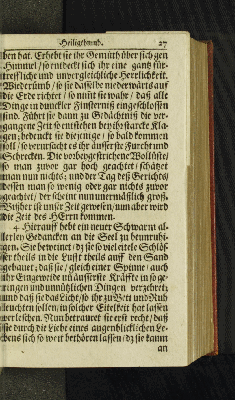 Heiligthumb. 27
ben hat. Erhebt sie ihr Gemüth über sich gen
Himmel / so entdeckt sich ihr eine gantz für-
treffliche und unvergleichliche Herrligkeit.
Wiederumb / so sie dasselbe niederwärts auf
die Erde richtet / so nimt sie wahr / daß alle
Dinge in dunckler Finsternis eingeschlossen
sind. Führt sie dann zu Gedächtniß die ver-
gangene Zeit so entstehen bey ihr starcke Kla-
gen; bedenckt sie diejenige / so bald kommen
soll / so verursacht es ihr äusserste Furcht und
Schrecken. Die vorbeygestrichene Wollüste /
so man zuvor gar hoch geachtet / schätzet
man nun nichts; und der Tag deß Gerichts /
dessen man so wenig oder gar nichts zuvor
geachtet / der scheint nun unermäßlich groß.
Bißher ist unser Zeit gewesen / nun aber wird
die Zeit des HErrn kommen.
4. Hierauff hebt ein neuer Schwarm al-
lerley Gedancken an die Seel zu beunruhi-
gen. Sie beweinet / dz sie so viel eitele Schlös-
ser theils in die Lufft theils auff den Sand
gebauet; daß sie / gleich einer Spinne / auch
ihr Eingeweide uñ äusserste Kräffte in so ge-
ringen und unnützlichen Dingen verzehret;
und daß sie das Licht / so ihr zu Weil und Nuh
leuchten sollen / in solcher Eitelkeit hat lassen
verleschen. Nun betrauret sie erst recht / daß
sie durch die Liebe eines angenblicklichen Le-
bens sich so weit bethören lassen / dz sie kaum
an